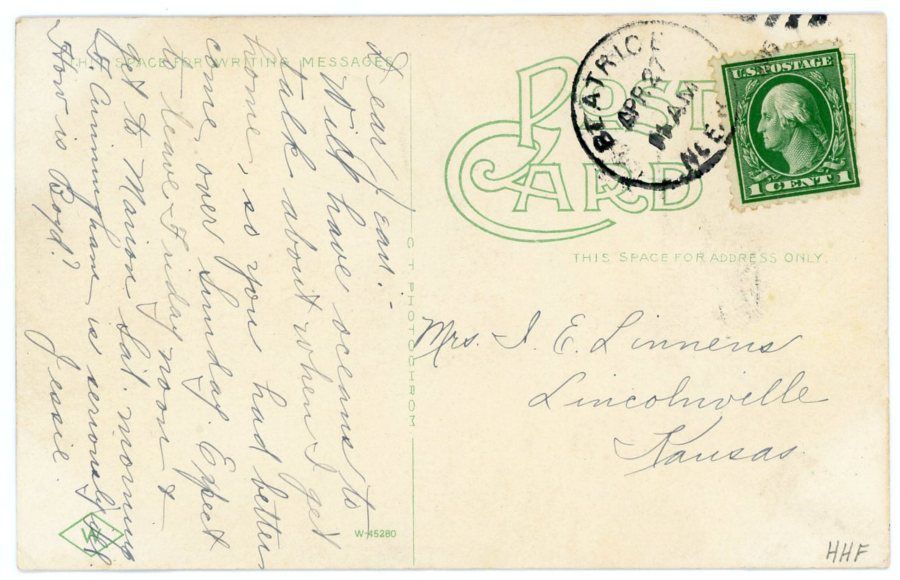 THIS SPACE FOR WRITING MESSAGES
Dear Jean:-
Will have oceans to
talk about when I get
home, so you had better
come over Sunday. Expect
to leave Friday noon &
get to Marion Sat. morning
Cunningham is seriously ill.
How is Boyd?
Jessie
C T PHOTOCHROM
W-45280
POST
CARD
BEATRICE
APR 27
AM
U.S. POSTAGE
1 CENT 1
THIS SPACE FOR ADDRESS ONLY.
Mrs. I. E. Linnens
Lincolnville
Kansas.
HHF